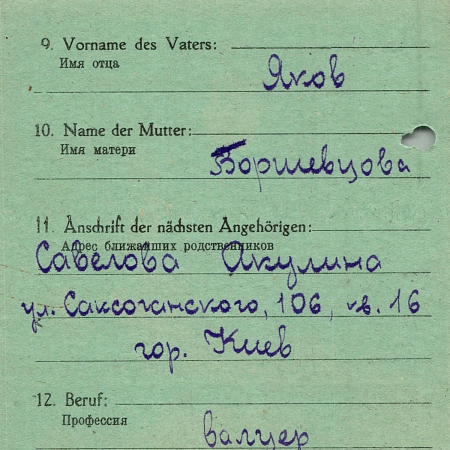 9. Vorname des Vaters:
Имя отца
Яков
10. Name der Mutter:
Имя матери
Боршевцова
11. Anschrift der nächsten Angehörigen:
Адрес ближайших родственников
Савелова Акулина
ул. Саксоганского, 106, кв. 16
гор. Киев
12. Beruf:
Профессия
валцер